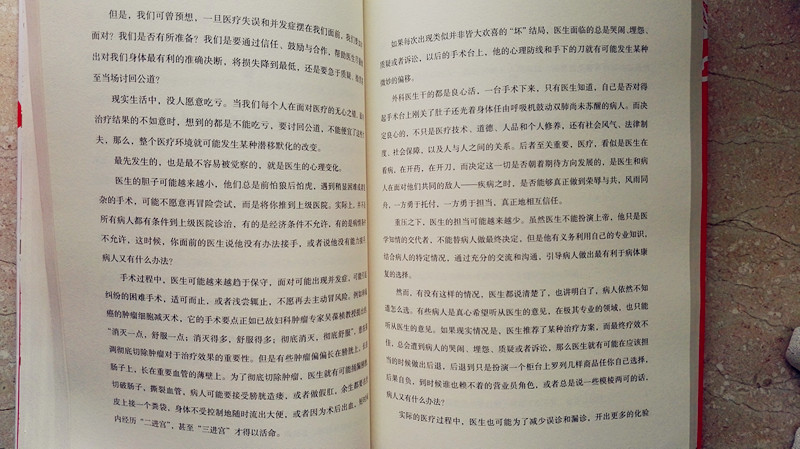 但是，我们可曾预想，一旦医疗失误和并发症摆在我们面前，我们
面对？我们是否有所准备？我们是要通过信任、鼓励与合作，帮助医生
出对我们身体最有利的准确决断，将损失降到最低，还是要急于质疑、
至当场讨回公道？
现实生活中，没人愿意吃亏。当我们每个人在面对医疗的无心之
治疗结果的不如意时，想到的都是不能吃亏，要讨回公道，不能便宜了这
夫，那么，整个医疗环境就可能发生某种潜移默化的改变。
最先发生的，也是最不容易被觉察的，就是医生的心理变化。
医生的胆子可能越来越小，他们总是前怕狼后怕虎，遇到稍显困难或
杂的手术，可能不愿意再冒险尝试，而是将你推到上级医院。实际上，并
所有病人都有条件到上级医院诊治，有的是经济条件不允许，有的是病情
不允许，这时候，你面前的医生说他没有办法接手，或者说他没有能力
病人又有什么办法？
手术过程中，医生可能越来越趋于保守，面对可能出现并发症，可能引
纠纷的困难手术，适可而止，或者浅尝辄止，不愿再去主动冒风险。例如
癌的肿瘤细胞减灭术，它的手术要点正如已故妇科肿瘤专家吴葆桢教授
“消灭一点，舒服一点；消灭得多，舒服得多；彻底消灭，彻底舒服”，
调彻底切除肿瘤对于治疗效果的重要性。但是有些肿瘤偏偏长在膀胱上，
肠子上，长在重要血管的薄壁上。为了彻底切除肿瘤，医生就有可能
切破肠子，撕裂血管，病人可能要接受膀胱造瘘，或者做假肛，余生都要
皮上接一个粪袋，身体不受控制地随时流出大便，或者因为术后出血，
内经历“二进宫”，甚至“三进宫”才得以活命。
如果每次出现类似并非皆大欢喜的“坏”结局，医生面临的总是哭闹、埋怨、
质疑或者诉讼，以后的手术台上，他的心理防线和手下的刀就有可能发生某种
微妙的偏移。
外科医生干的都是良心活，一台手术下来，只有医生知道，自己是否对得
起手术台上刚关了肚子还光着身体任由呼吸机鼓动双肺尚未苏醒的病人。而决
定良心的，不只是医疗技术、道德、人品和个人修养，还有社会风气、法律制
度、社会保障，以及人与人之间的关系。后者至关重要，医疗，看似是医生在
看病，在开药，在开刀，而决定这一切是否朝着期待方向发展的，是医生和病
人在面对他们共同的敌人——疾病之时，是否能够真正做到荣辱与共，风雨同
舟，一方勇于托付，一方勇于担当，真正地相互信任。
重压之下，医生的担当可能越来越少。虽然医生不能扮演上帝，他只是医
学知情的交代者，不能替病人做最终决定，但是他有义务利用自己的专业知识，
结合病人的特定情况，通过充分的交流和沟通，引导病人做出最有利于病体康
复的选择。
然而，有没有这样的情况，医生都说清楚了，也讲明白了，病人依然不知
道怎么选。有些病人是真心希望听从医生的意见，在极其专业的领域，也只能
听从医生的意见。如果现实情况是，医生推荐了某种治疗方案，而最终疗效不
佳，总会遭到病人的哭闹、埋怨、质疑或者诉讼，那么医生就有可能在应该担
当的时候做出后退，后退到只是扮演一个柜台上罗列几样商品任你自己选择，
后果自负，到时候谁也赖不着的营业员角色，或者总是说一些模棱两可的话，
病人又有什么办法？
实际的医疗过程中，医生也可能为了减少误诊和漏诊，开出更多的化验